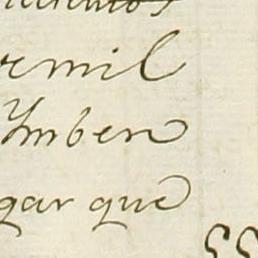 rmil
Ymben
gar que